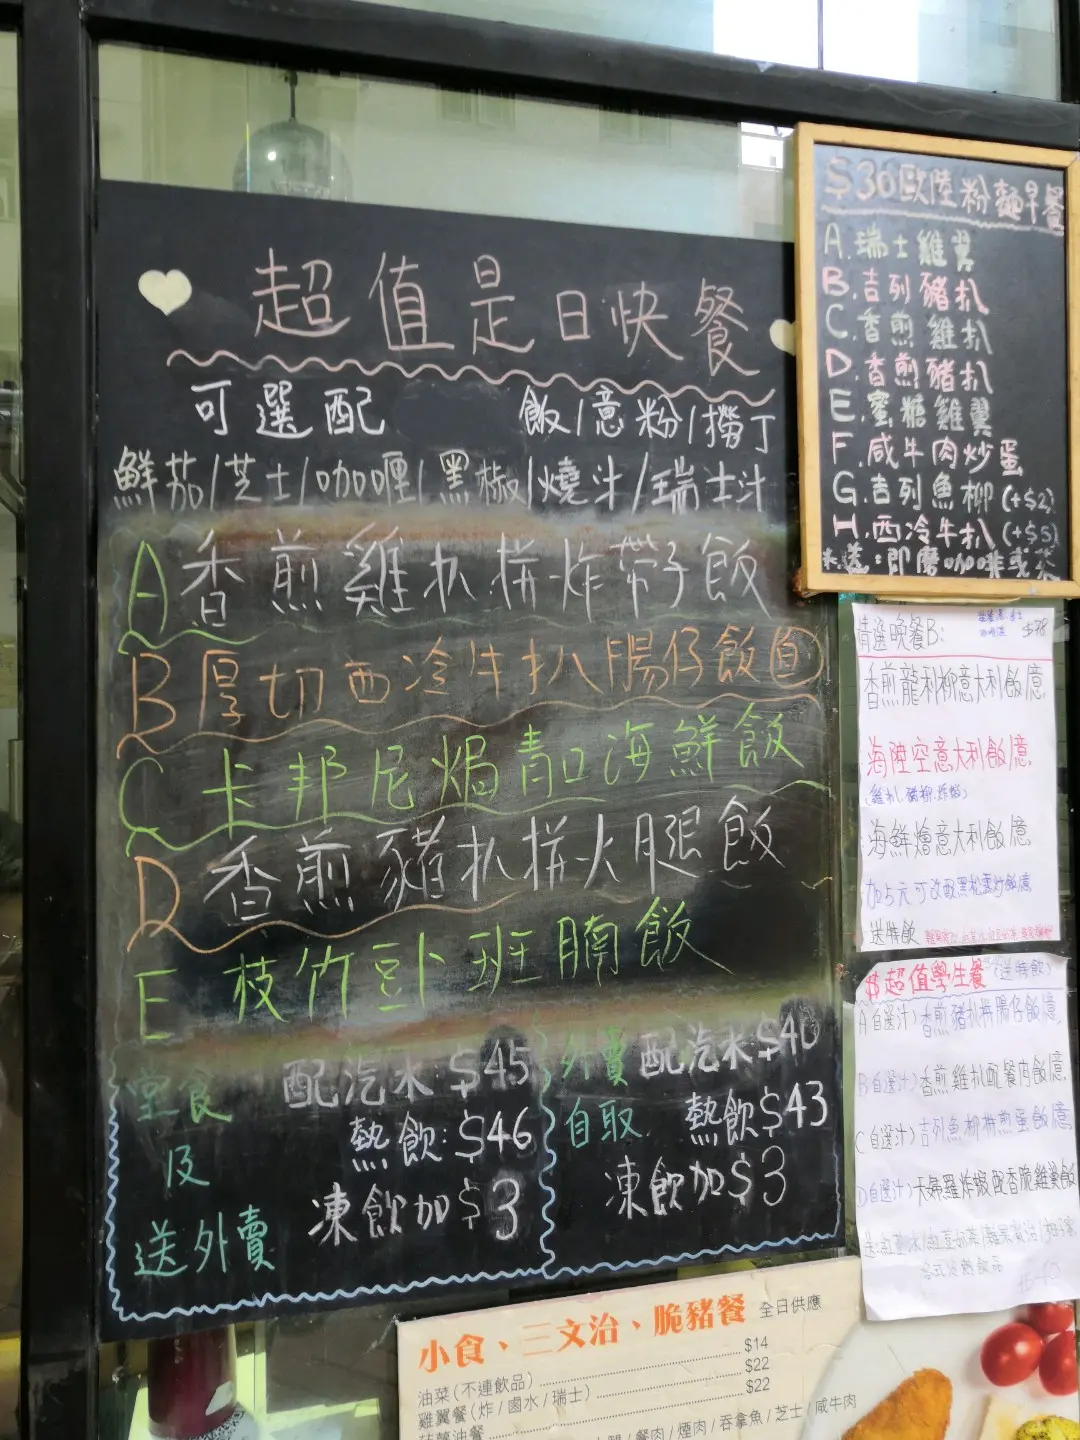 超值是日快餐
可選配 飯/意粉/撈丁
鮮茄/芝士/咖喱/黑椒/燒汁/瑞士汁
A 香煎雞扒拼炸带子飯
B 厚切西冷牛扒腸仔飯
C 卡邦尼焗青口海鮮飯
D 香煎豬扒拼火腿飯
E 枝竹卜班腩飯
堂食及送外賣
配汽水:$45
熱飲:$46
凍飲加$3
外賣自取
配汽水$40
熱飲$43
凍飲加$3
$30歐陸粉麵早餐
A.瑞士雞翼
B.吉列豬扒
C.香煎雞扒
D.香煎豬扒
E.蜜糖雞翼
F.咸牛肉炒蛋
G.吉列魚柳(+$2)
H.西冷牛扒(+$5)
*送:即磨咖啡或茶
精選晚餐B: $78
香煎龍利柳意大利飯/意
海陸空意大利飯/意
(雞扒.豬柳.炸蝦)
海鮮燴意大利飯/意
加5元可改配黑松露炒飯/意
送特飲
$超值學生餐(送特飲)
A(自選汁)香煎豬扒拼腸仔飯/意
B(自選汁)香煎雞扒配餐肉飯/意
C(自選汁)吉列魚柳拼煎蛋飯/意
D(自選汁)卡娜羅炸蝦配香脆雞翼飯
小食、三文治、脆豬餐 全日供應
油菜(不連飲品) $14
雞翼餐(炸/鹵水/瑞士) $22
$22
/餐肉/煙肉/吞拿魚/芝士/咸牛肉